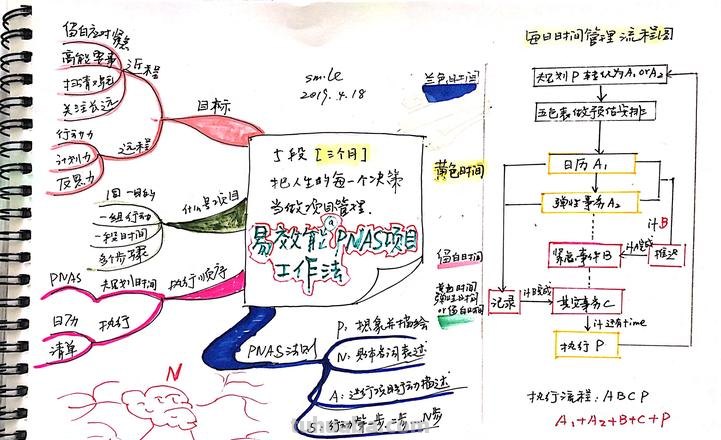 smile
2019.4.18
5段[三个月]
把人生的每一个决策
当做项目管理.
易效能®PNAS项目
工作法
目标
近程
留白应对紧急
高能要事
扫清障碍
关注长远
远程
行动力
计划力
反思力
什么是项目
1个目的
一组行动
一段时间
多个步骤
执行顺序
PNAS
规划时间
执行
日历
清单
PNAS法则
P:想象并描绘
N:
A:进行项目行动描述
S:行动第一步 N步
N
蓝色时间
黄色时间
留白时间
黄色时间
弹性时间
or留白时间
每日时间管理流程图
规划P转化为A₁orA₂
五色表做预估安排
日历A₁
弹性事务A₂
紧急事件B
推迟
计B
记录
其它事务C
计B完成
计还有time
执行P
执行流程:ABCP
A₁+A₂+B+C+P